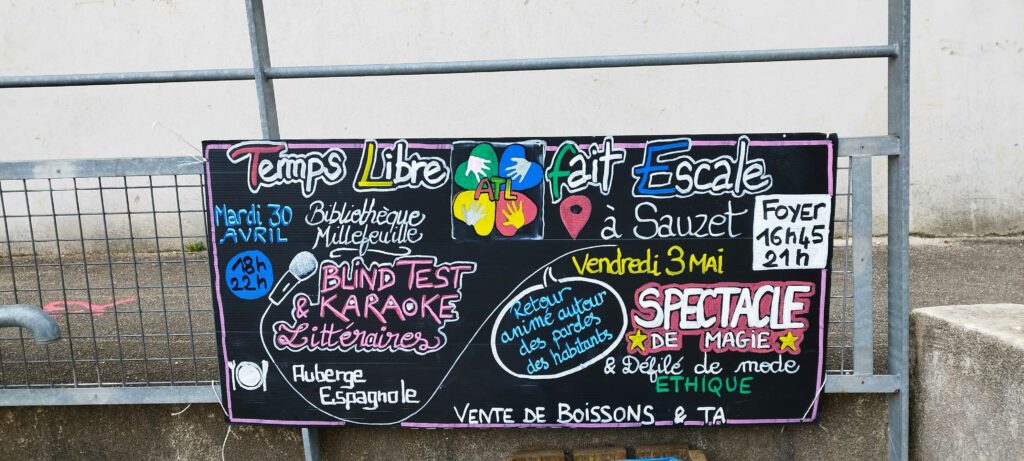 Temps Libre fait Escale
ATL
à Sauzet
Mardi 30
AVRIL
18h
22h
Bibliothèque
Millefeuille
BLIND TEST
& KARAOKE
Littéraires
Auberge
Espagnole
Retour
animé autour
des paroles
des habitants
Vendredi 3 MAI
FOYER
16h45
21h
SPECTACLE
DE MAGIE
& Défilé de mode
ETHIQUE
VENTE DE BOISSONS &